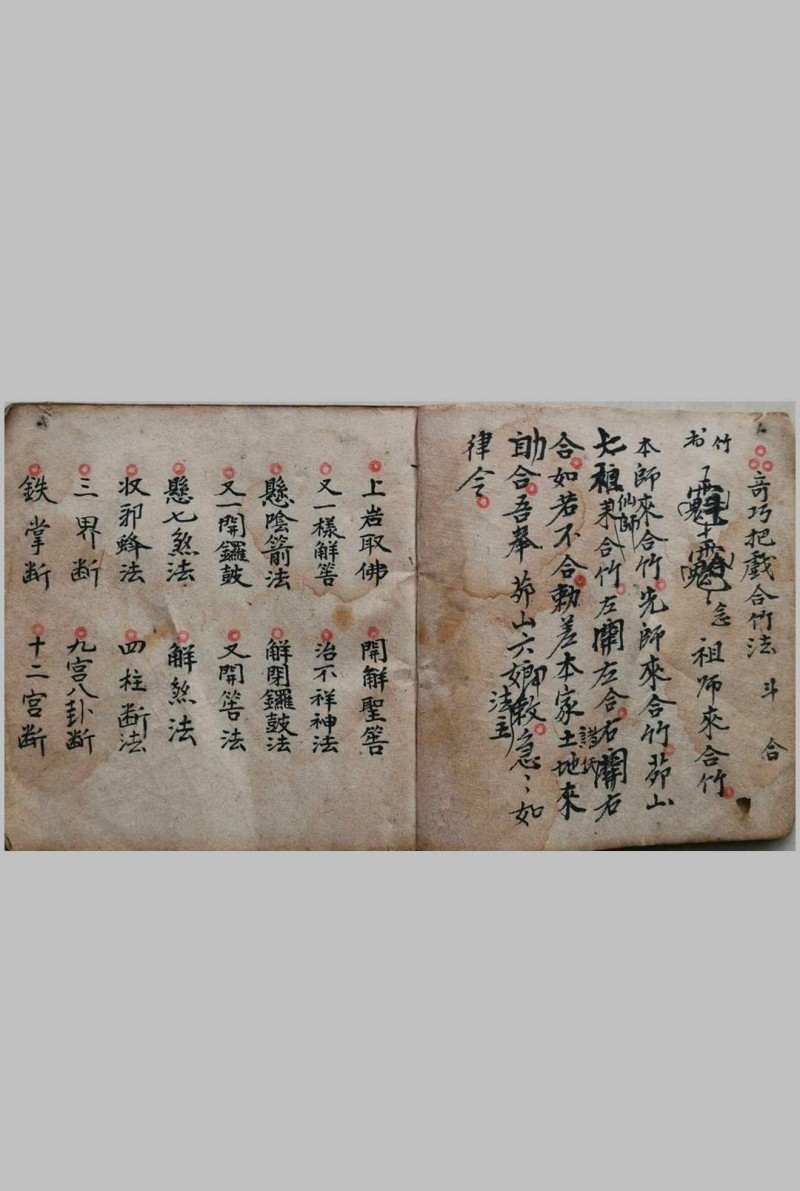 奇巧把戲合竹法 斗合
竹书 念 祖师來合竹
本師來合竹先師來合竹茆山
七祖仙師來合竹左開左合右開右
合如若不合勅差本家土地來
助合吾奉茆山六娘法主敕急〻如
律令
上岩取佛 開解聖筶
又一樣解筶 治不祥神法
懸陰箭法 解閉鑼鼓法
又一開鑼鼓 又開筶法
懸七煞法 解煞法
收邪蜂法 四柱断法
三界断 九宫八卦断
鉄掌断 十二宫断